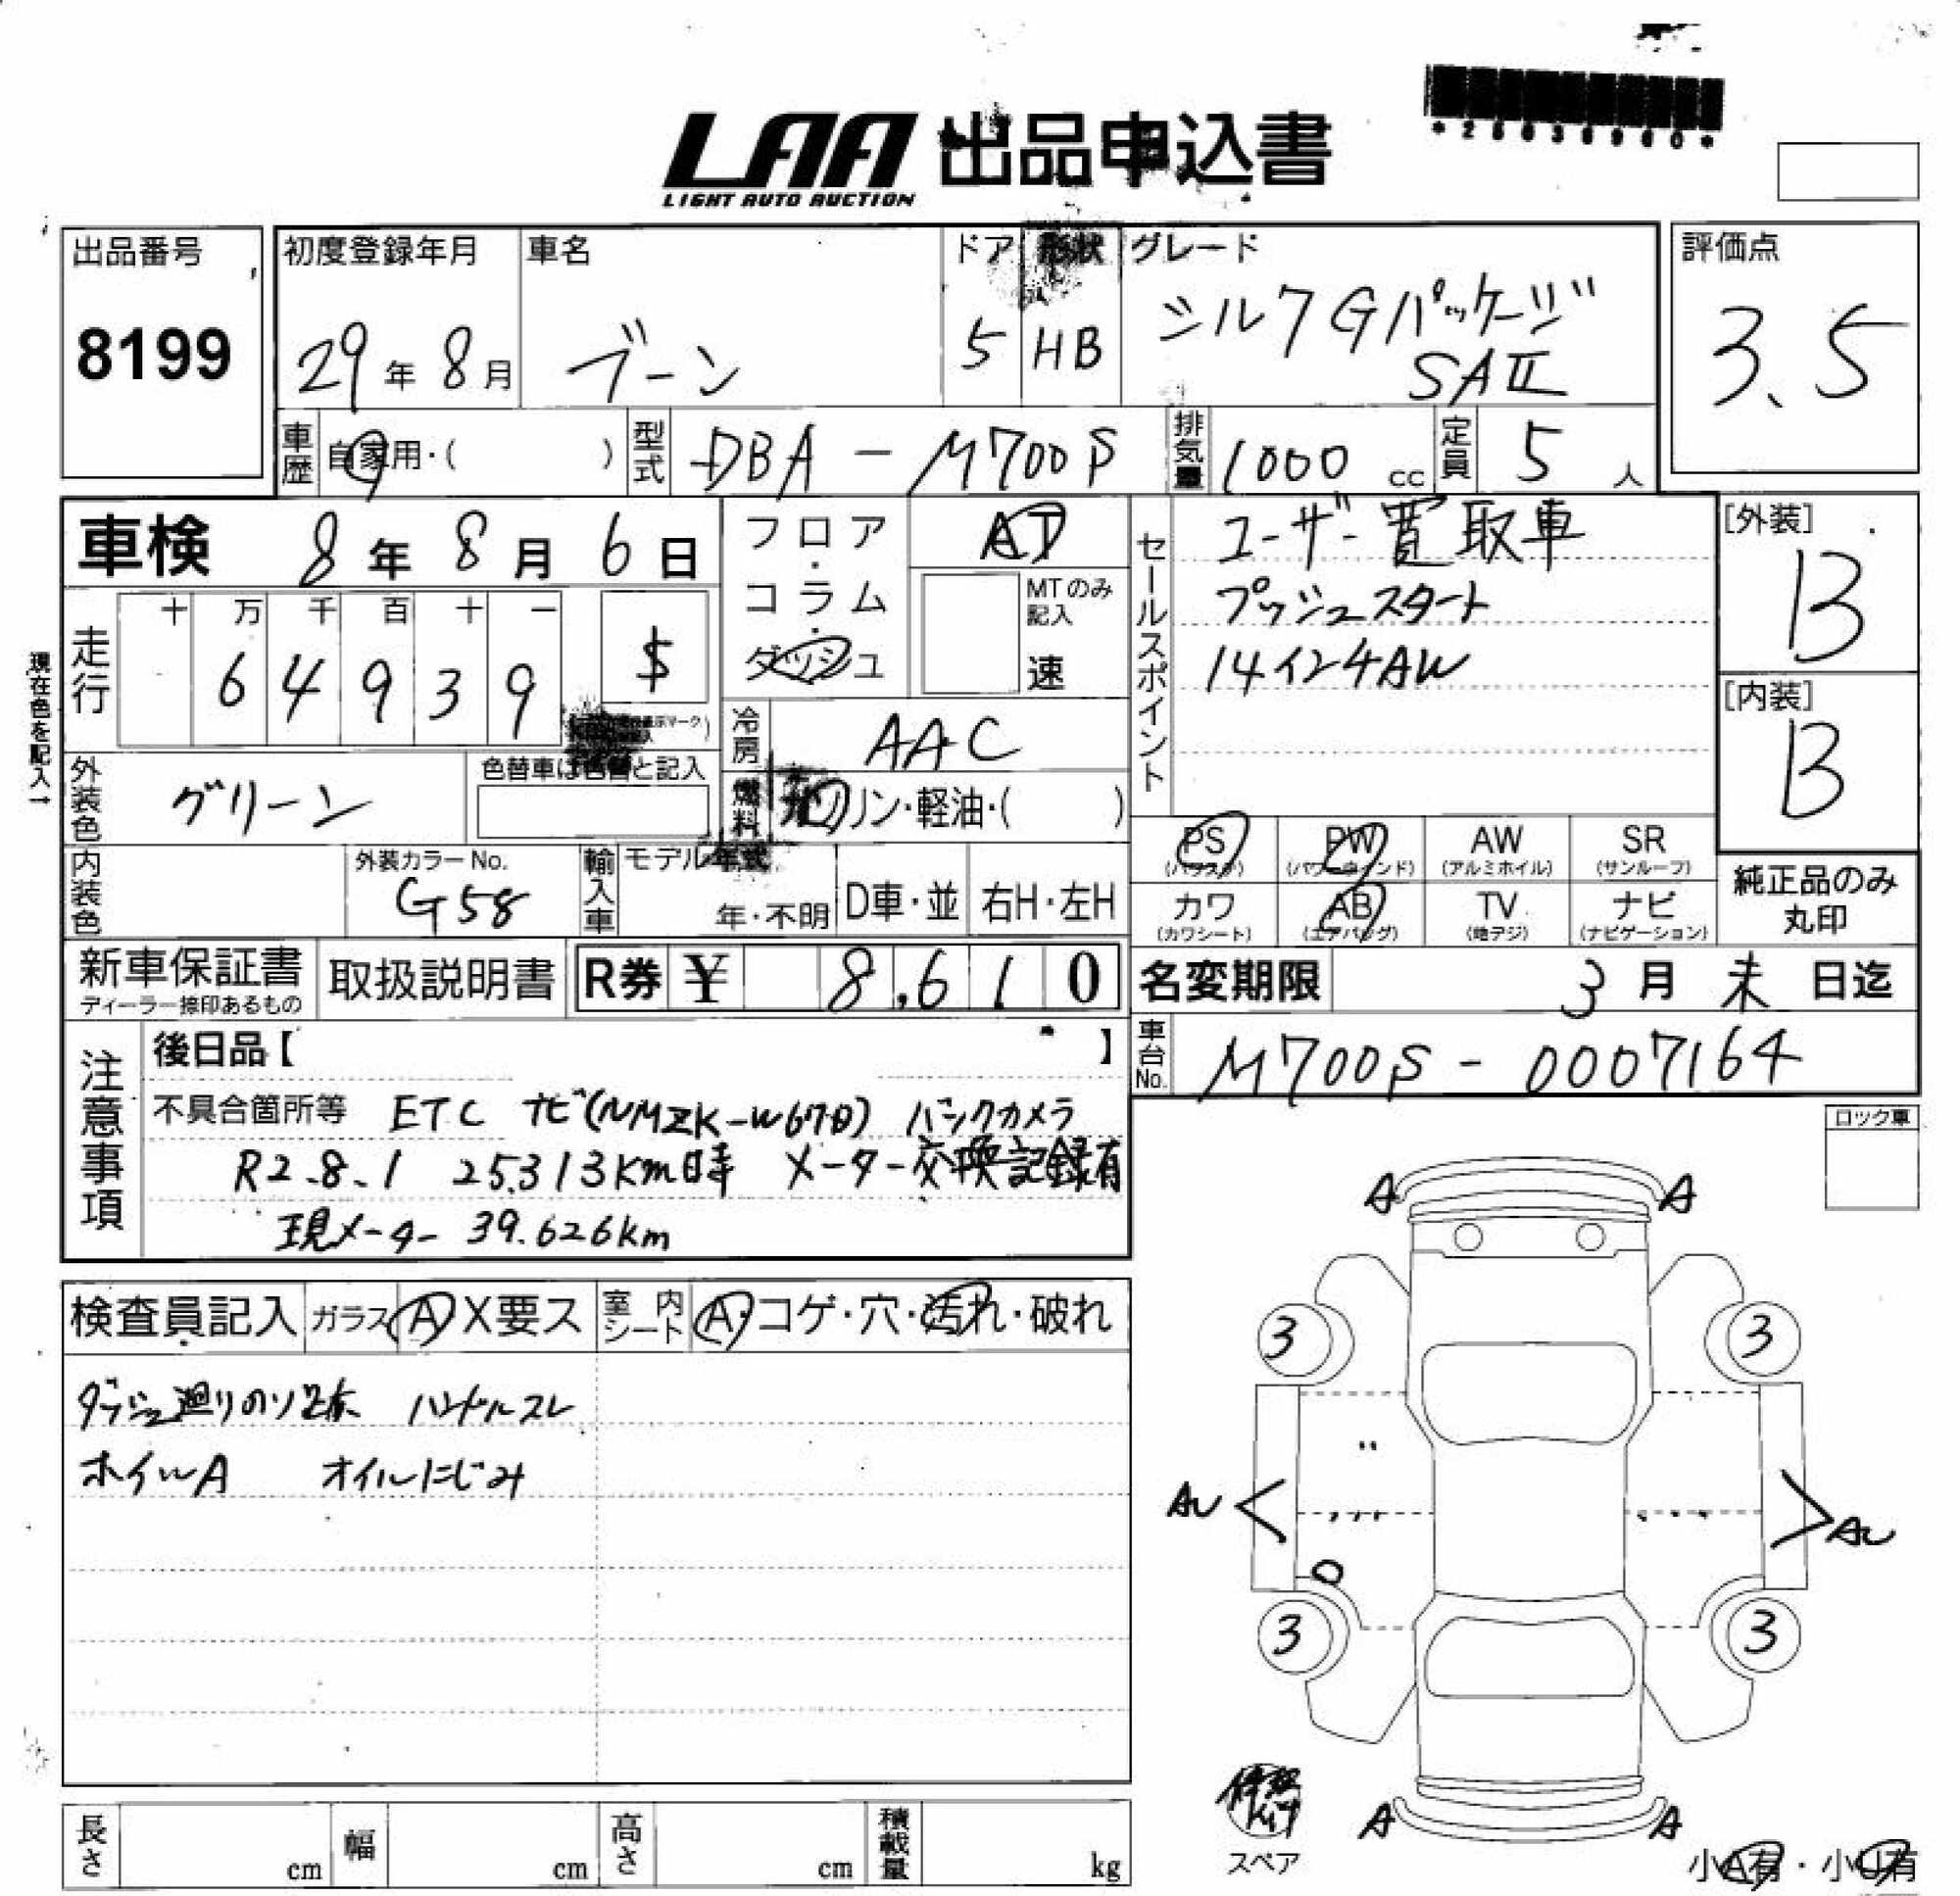 *25036960*
LAA 出品申込書
LIGHT AUTO AUCTION
出品番号 8199
初度登録年月 29年 8月
車名 ブーン
ドア 5
形状 HB
グレード シルクGパッケージ
SAII
評価点 3.5
車歴 自家用・( )
型式 DBA-M700S
排気量 1000 cc
定員 5 人
車検 8年 8月 6日
フロア・コラム・ダッシュ
AT
MTのみ記入
速
セールスポイント
ユーザー買取車
プッシュスタート
14インチAW
[外装] B
[内装] B
現在色を記入→
走行 十 万 千 百 十 一
6 4 9 3 9 $
冷房 AAC
燃料 ガソリン・軽油・( )
外装色 グリーン
色替車は色替と記入
内装色
外装カラーNo. G58
輸入車 モデル年式
年・不明
D車・並
右H・左H
PS (パワステ) PW (パワーウインド) AW (アルミホイル) SR (サンルーフ)
カワ (カワシート) AB (エアバッグ) TV (地デジ) ナビ (ナビゲーション)
純正品のみ
丸印
新車保証書
ディーラー捺印あるもの
取扱説明書
R券 ¥ 8,610
名変期限 3月 末 日迄
車台No. M700S-0007164
注意事項
後日品【 】
不具合箇所等 ETC ナビ(NMZK-W67D) バックカメラ
R2.8.1 25.313Km時 メーター交換記録有
現メーター 39.626km
ロック車
検査員記入 ガラス A X要ス 室内シート A・コゲ・穴・汚れ・破れ
ダッシュ廻りのソ跡 ハンドルスレ
ホイルA オイルにじみ
A A
3 3
AU AU
3 3
A A
修理
Kit
スペア
小A有・小U有
長さ cm 幅 cm 高さ cm 積載量 kg